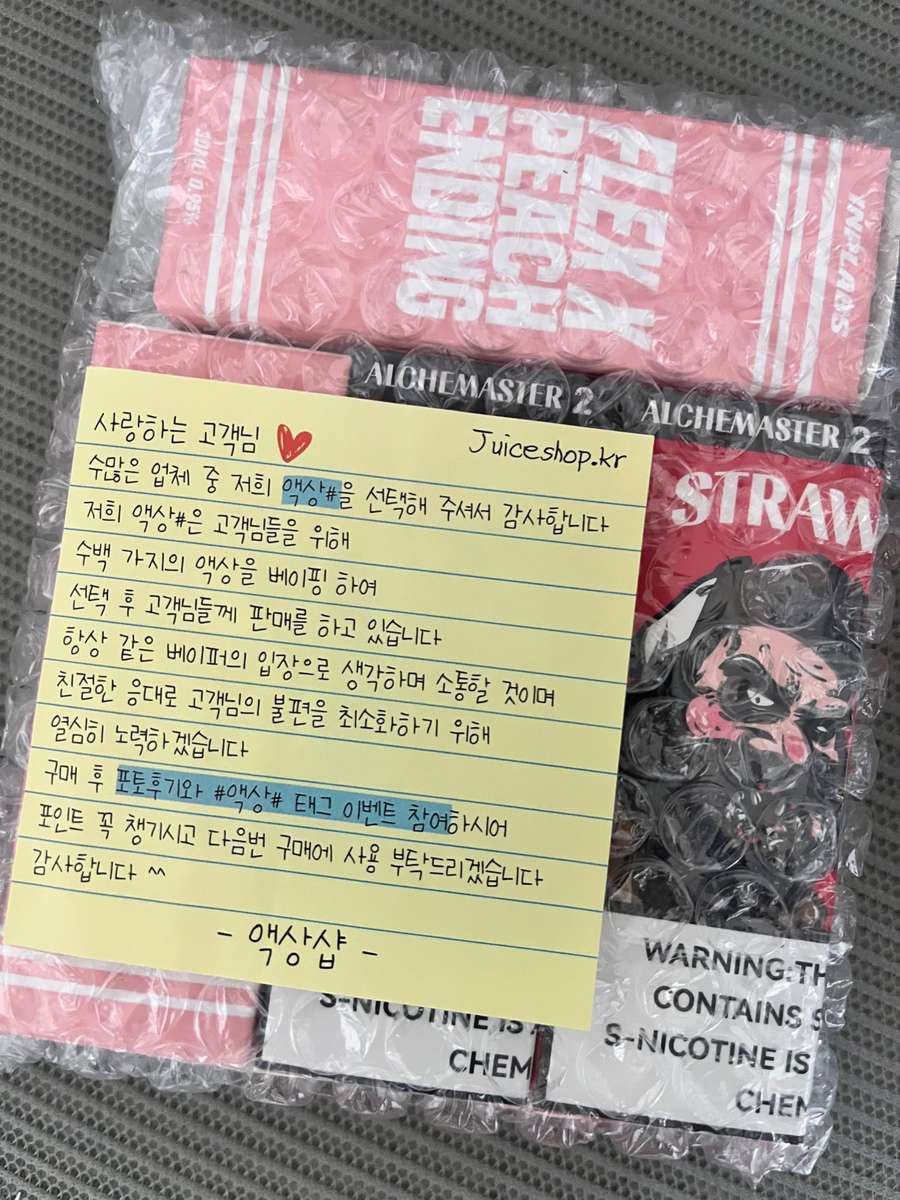 FLEX X
PEACH
ENDING
INNOLABS
ALCHEMASTER 2
ALCHEMASTER 2
STRAW
사랑하는 고객님
Juiceshop.kr
수많은 업체 중 저희 액상#을 선택해 주셔서 감사합니다
저희 액상#은 고객님들을 위해
수백 가지의 액상을 베이핑 하여
선택 후 고객님들께 판매를 하고 있습니다
항상 같은 베이퍼의 입장으로 생각하며 소통할 것이며
친절한 응대로 고객님의 불편을 최소화하기 위해
열심히 노력하겠습니다
구매 후 포토후기와 #액상# 태그 이벤트 참여하시어
포인트 꼭 챙기시고 다음번 구매에 사용 부탁드리겠습니다
감사합니다 ^^
- 액상샵 -
S-NICOTINE IS
CHEM
WARNING:TH
CONTAINS S
S-NICOTINE IS
CHEM